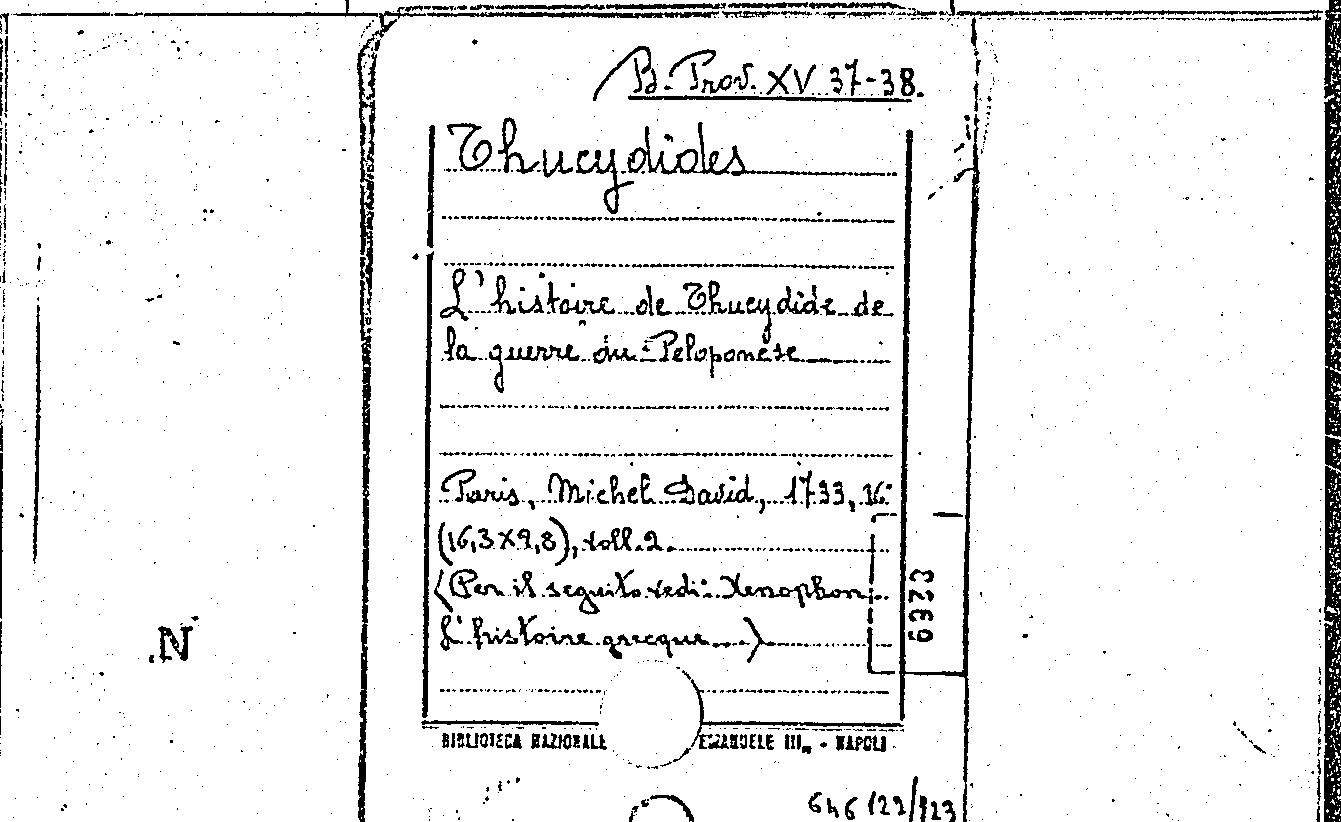 B. Prov. XV 37-38.
Thucydides
L'histoire de Thucydide de
la guerre du Peloponese
Paris, Michel David, 1733, 16°
(16,3x9,8), voll. 2.
(Per il seguito vedi: Xenophon.
L'histoire grecque...)
6323
N
BIBLIOTECA NAZIONALE EMANUELE III. - NAPOLI
646122/123